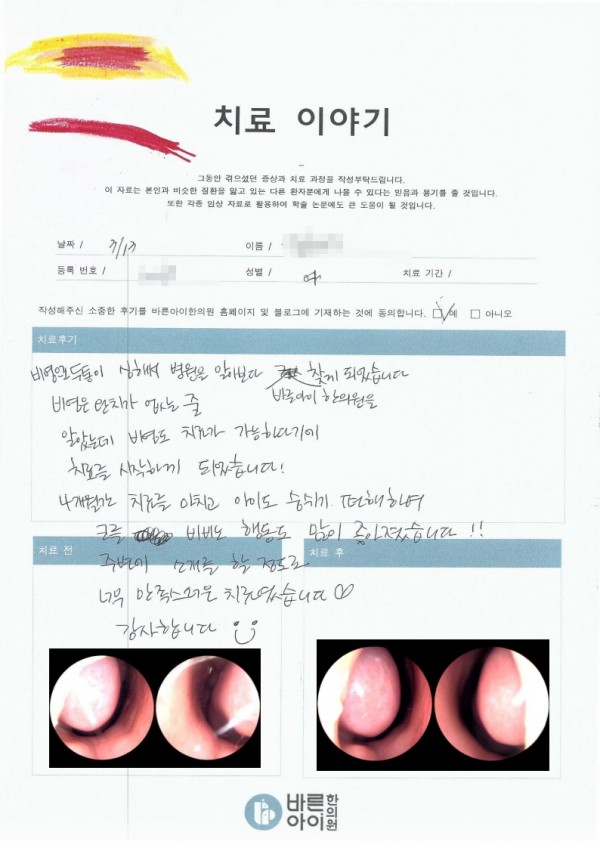 치료 이야기
그동안 겪으셨던 증상과 치료 과정을 작성부탁드립니다.
이 자료는 본인과 비슷한 질환을 앓고 있는 다른 환자분에게 나을 수 있다는 믿음과 용기를 줄 것입니다.
또한 각종 임상 자료로 활용하여 학술 논문에도 큰 도움이 될 것입니다.
날짜 / 7/17 이름 /
등록 번호 / 성별 / 여 치료 기간 /
작성해주신 소중한 후기를 바른아이한의원 홈페이지 및 블로그에 기재하는 것에 동의합니다. 예 아니오
치료후기
심해서 병원을 알아보다 찾게 되었습니다
바른아이 한의원을
비염은 완치가 없는 줄
알았는데 비염도 치료가 가능하다기에
치료를 시작하게 되었습니다!
4개월간 치료를 마치고 아이도 숨쉬기 편해하며
코를 비비는 행동도 많이 좋아졌습니다!!
치료 전 치료 후
주변에 소개를 할 정도로
너무 만족스러운 치료였습니다♡
감사합니다
바른아이 한의원